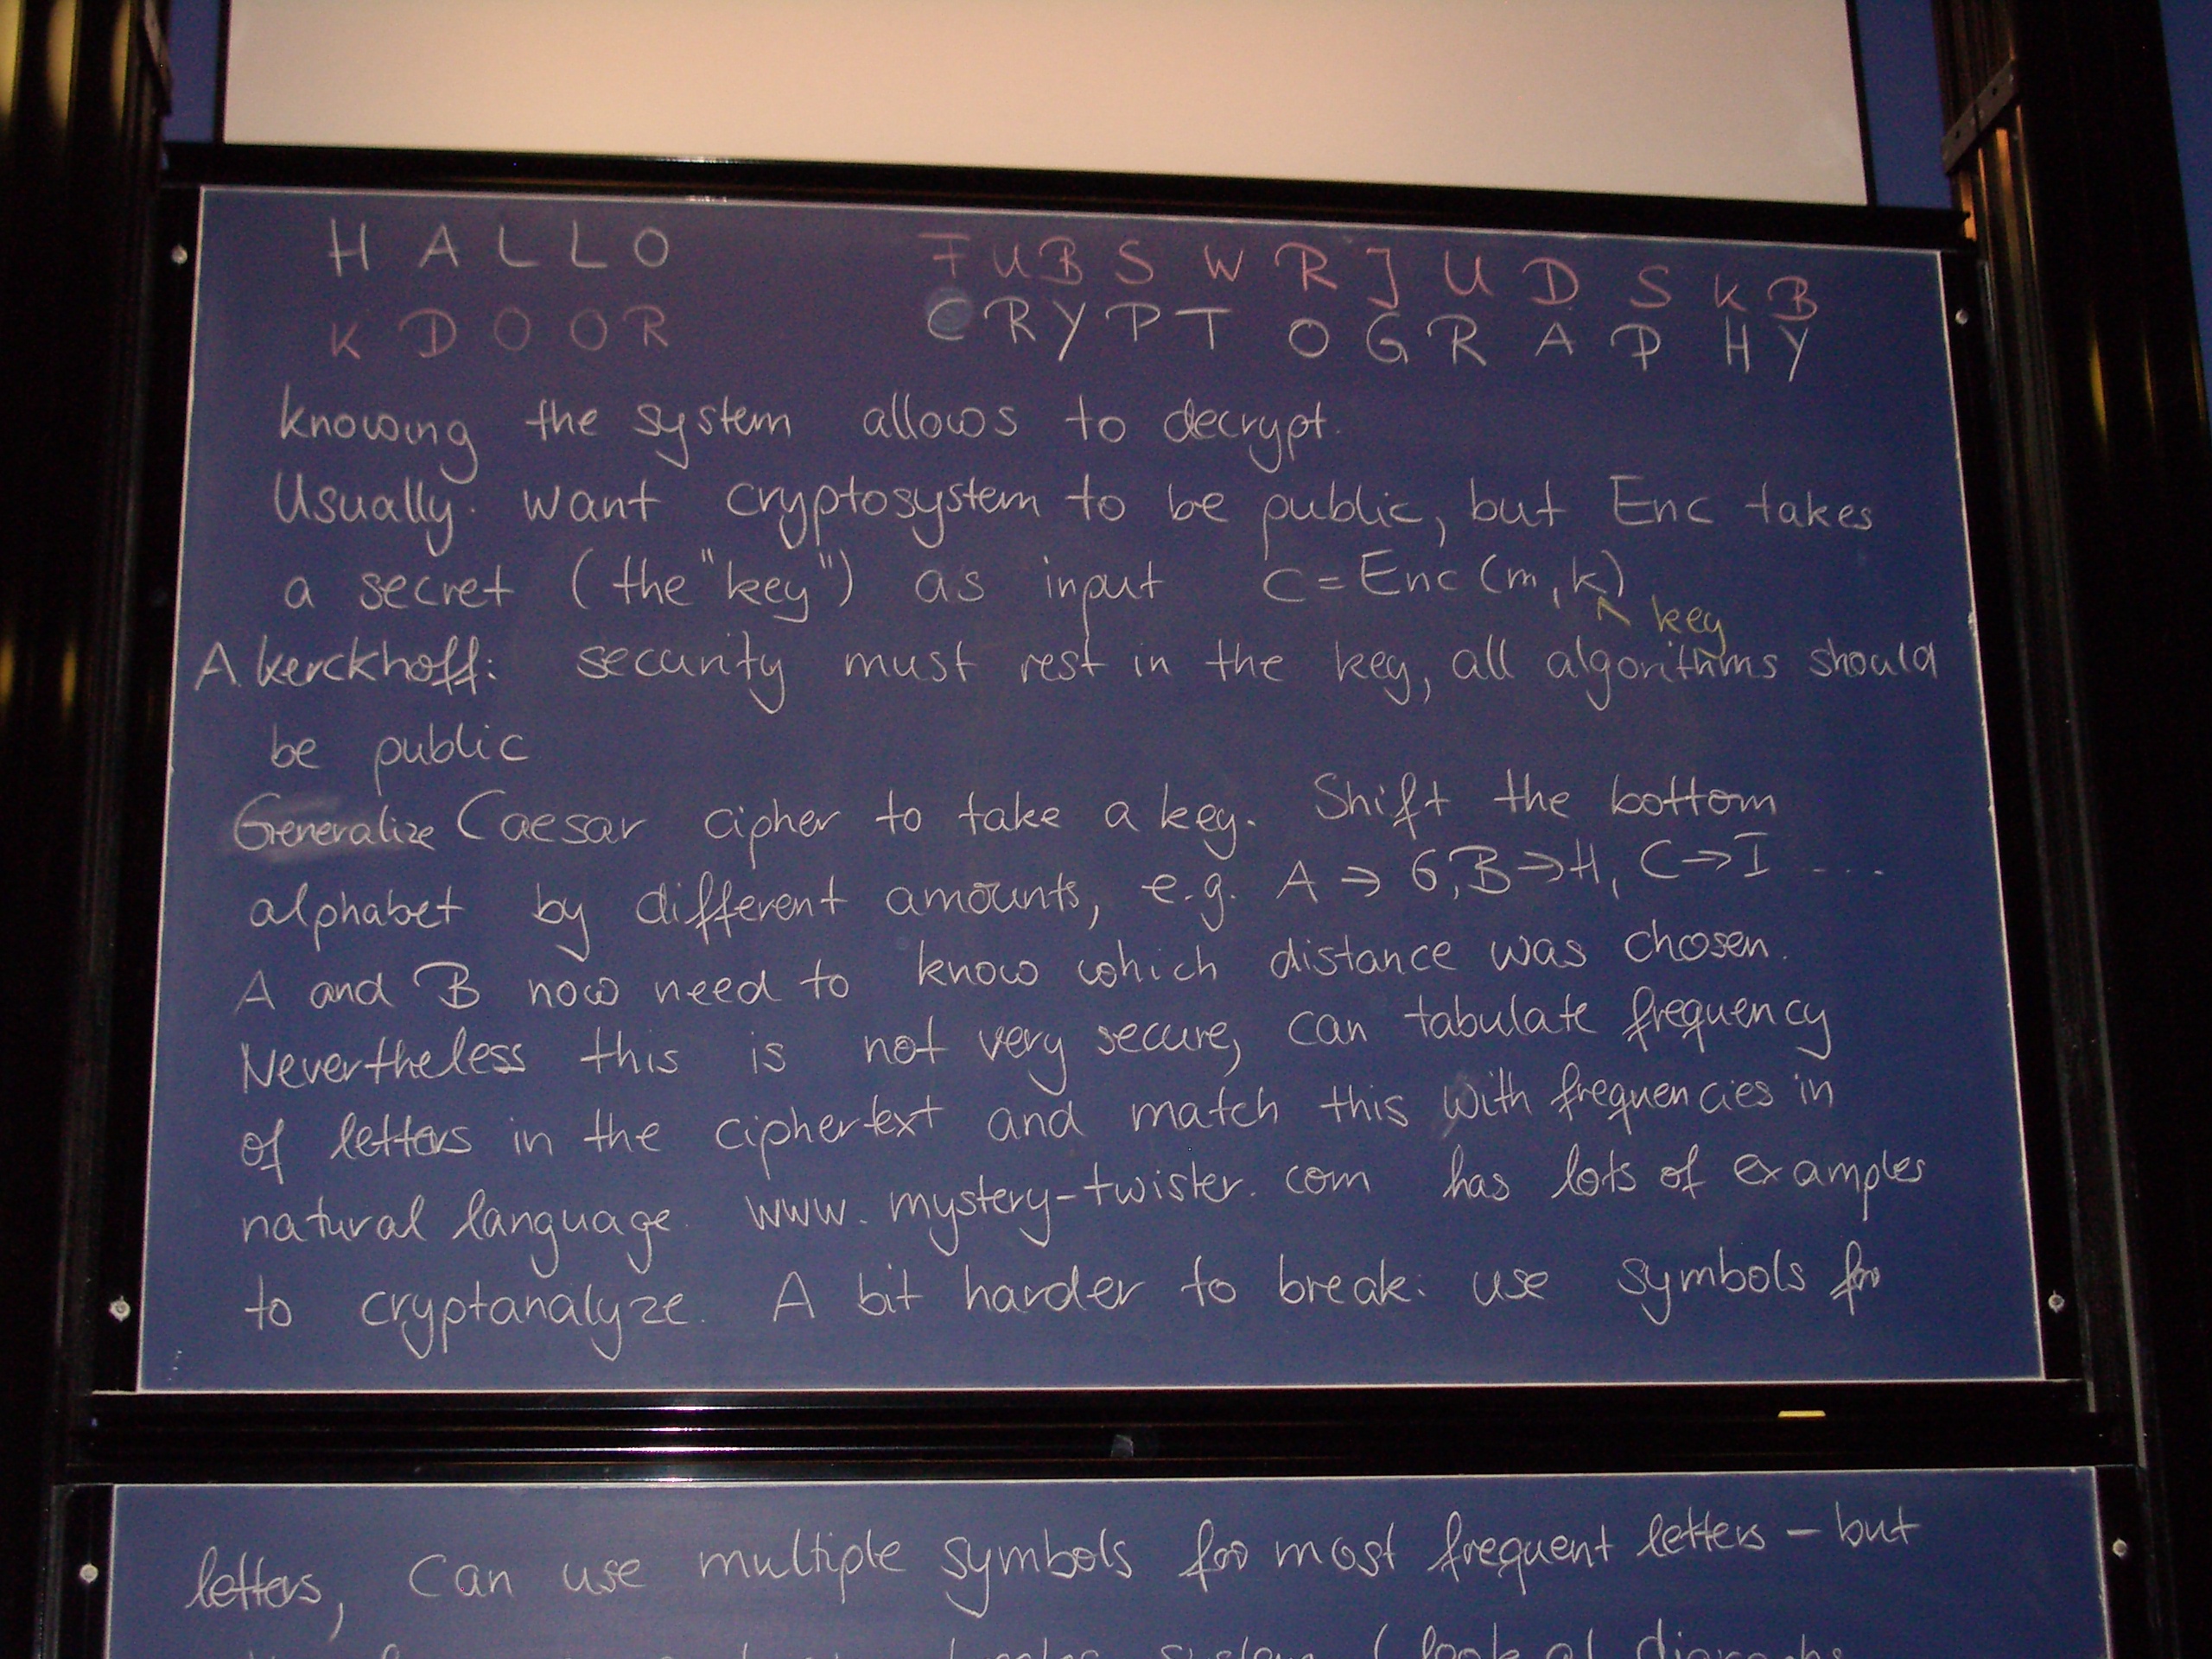 H A L L O F U B S W R J U D S K B
K D O O R C R Y P T O G R A P H Y
knowing the system allows to decrypt.
Usually: want cryptosystem to be public, but Enc takes
a secret (the "key") as input C = Enc (m, k)
key
A. kerckhoff: security must rest in the key, all algorithms should
be public
Generalize Caesar cipher to take a key. Shift the bottom
alphabet by different amounts, e.g. A → G, B → H, C → I ....
A and B now need to know which distance was chosen.
Nevertheless this is not very secure, can tabulate frequency
of letters in the ciphertext and match this with frequencies in
natural language. www.mystery-twister.com has lots of examples
to cryptanalyze. A bit harder to break: use symbols for
letters, Can use multiple symbols for most frequent letters – but
system ( look at digraphs